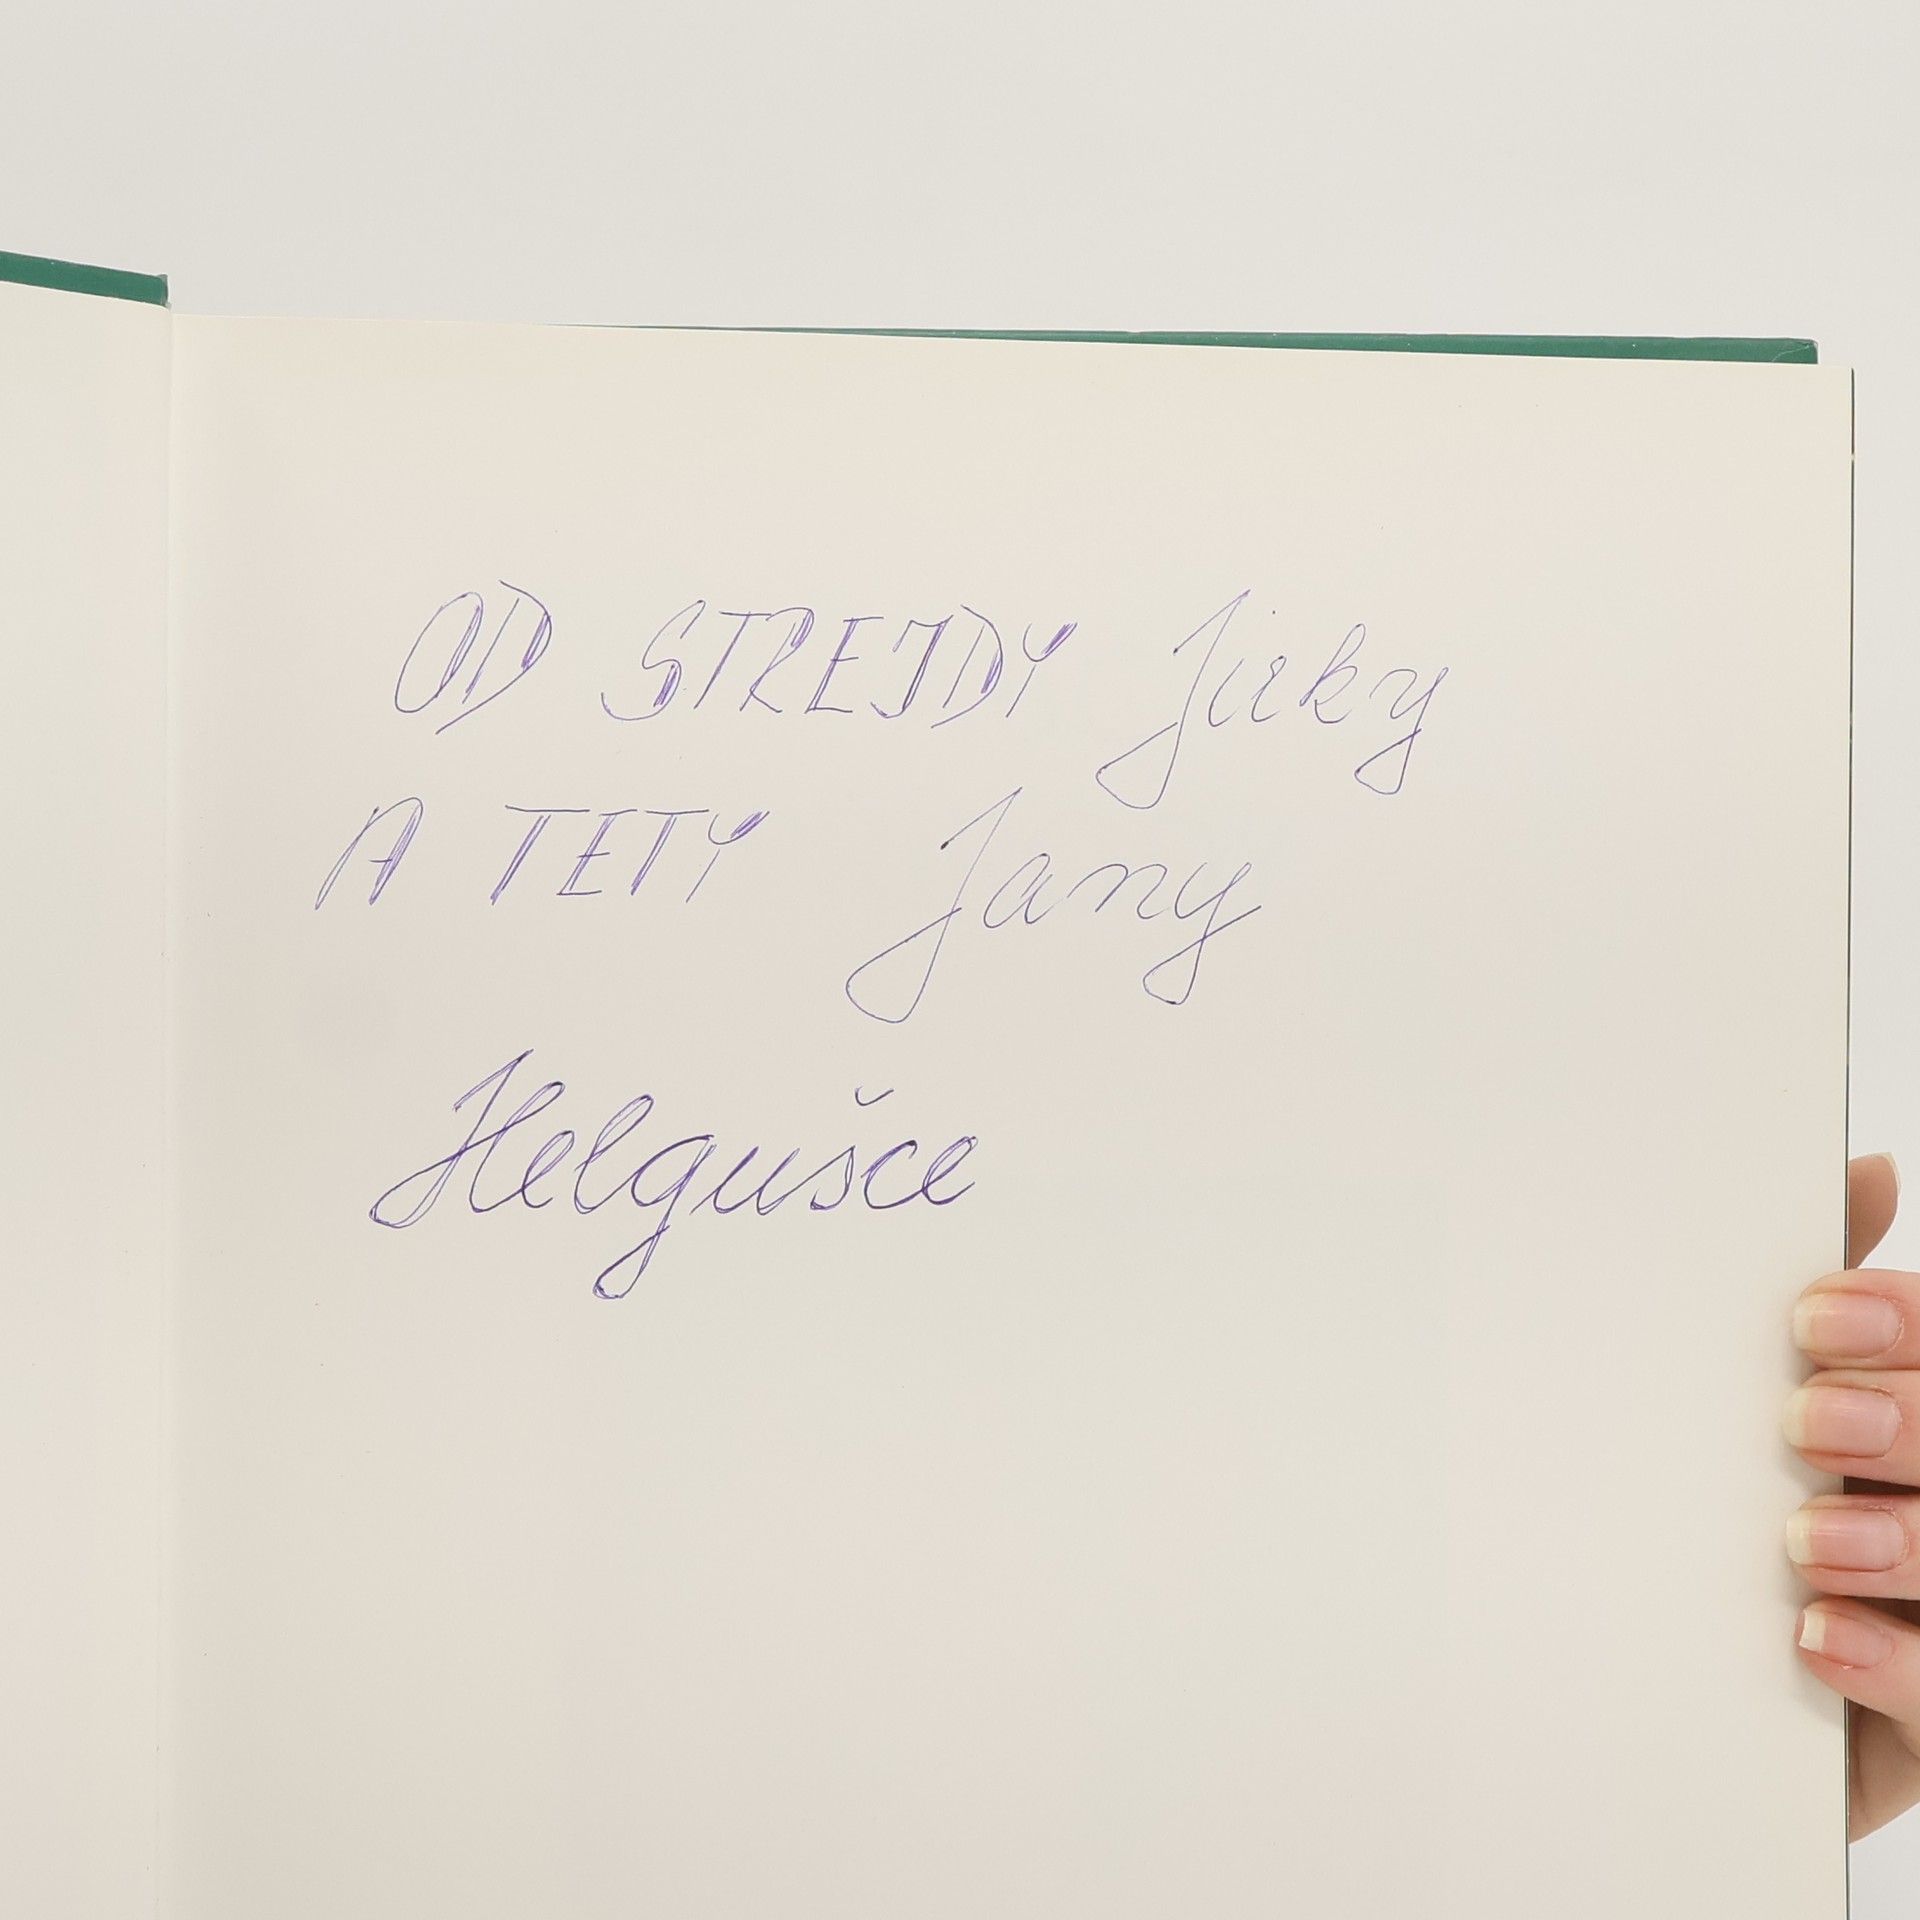 OD STREJDY Jirky
A TETY Jany
Helgušce